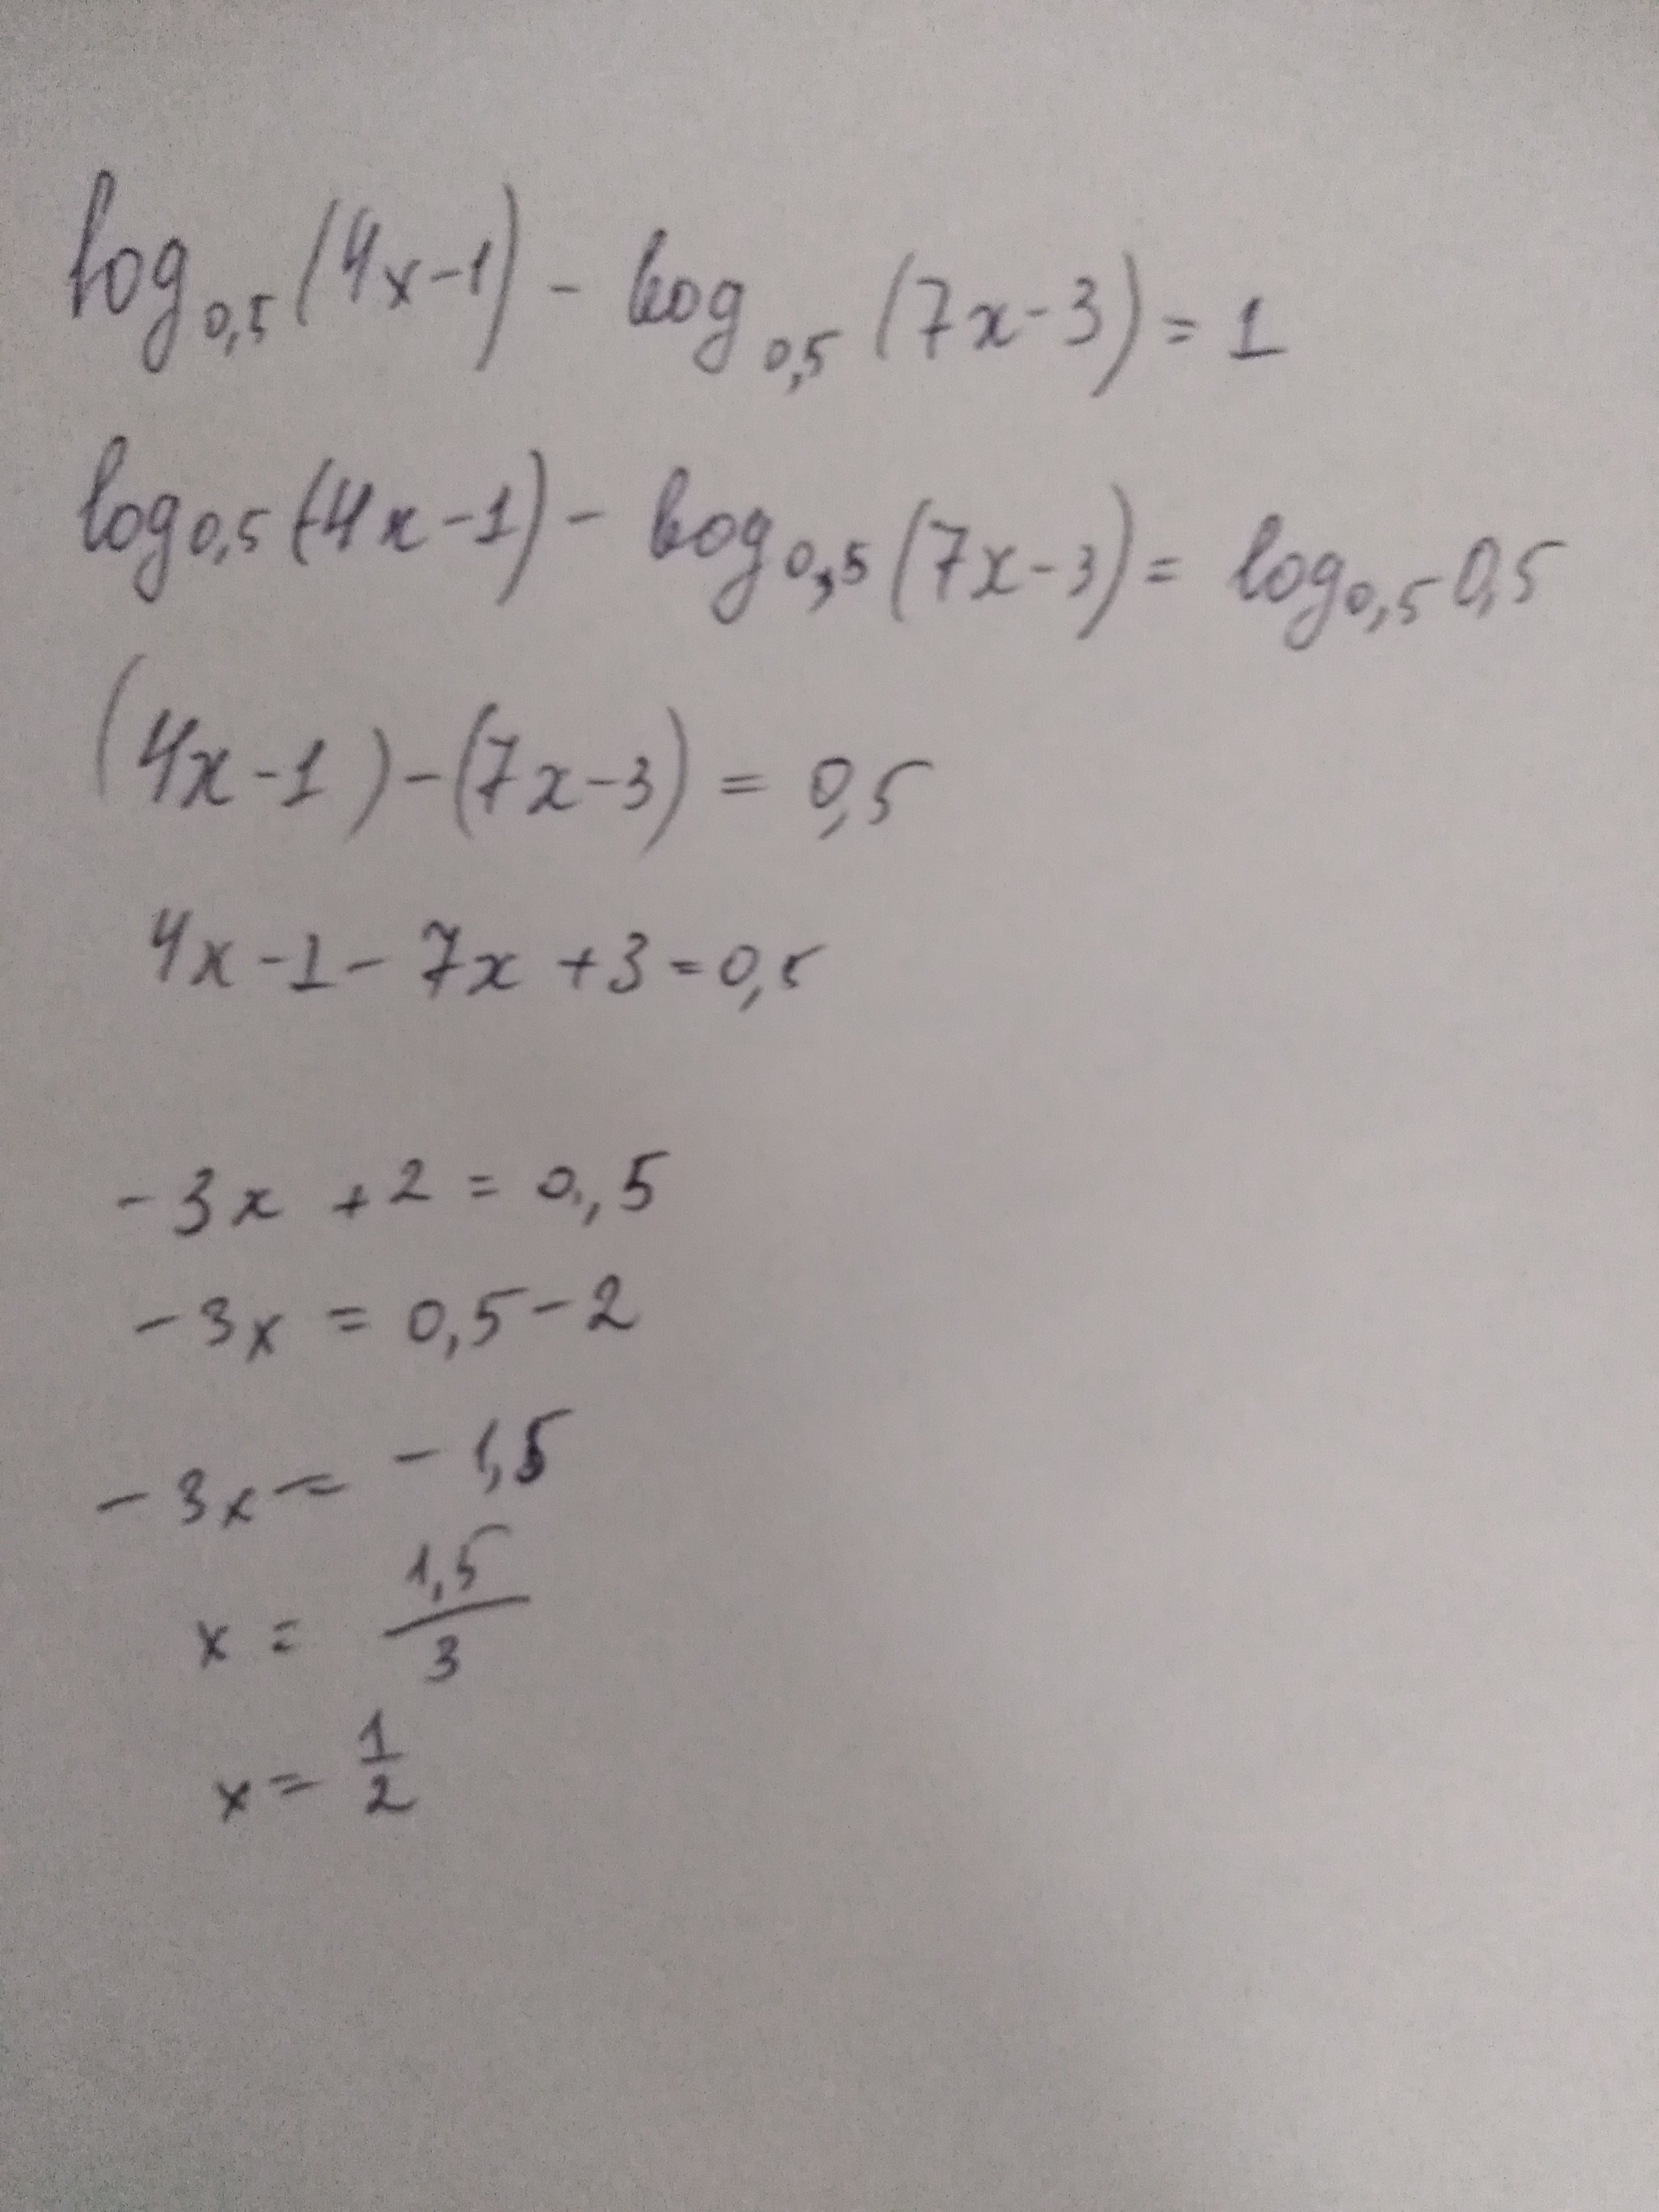 log₀,₅(4x-1) - log₀,₅(7x-3) = 1
log₀,₅(4x-1) - log₀,₅(7x-3) = log₀,₅0,5
(4x-1)-(7x-3) = 0,5
4x-1-7x+3=0,5
-3x+2=0,5
-3x=0,5-2
-3x=-1,5
x = 1,5/3
x = 1/2